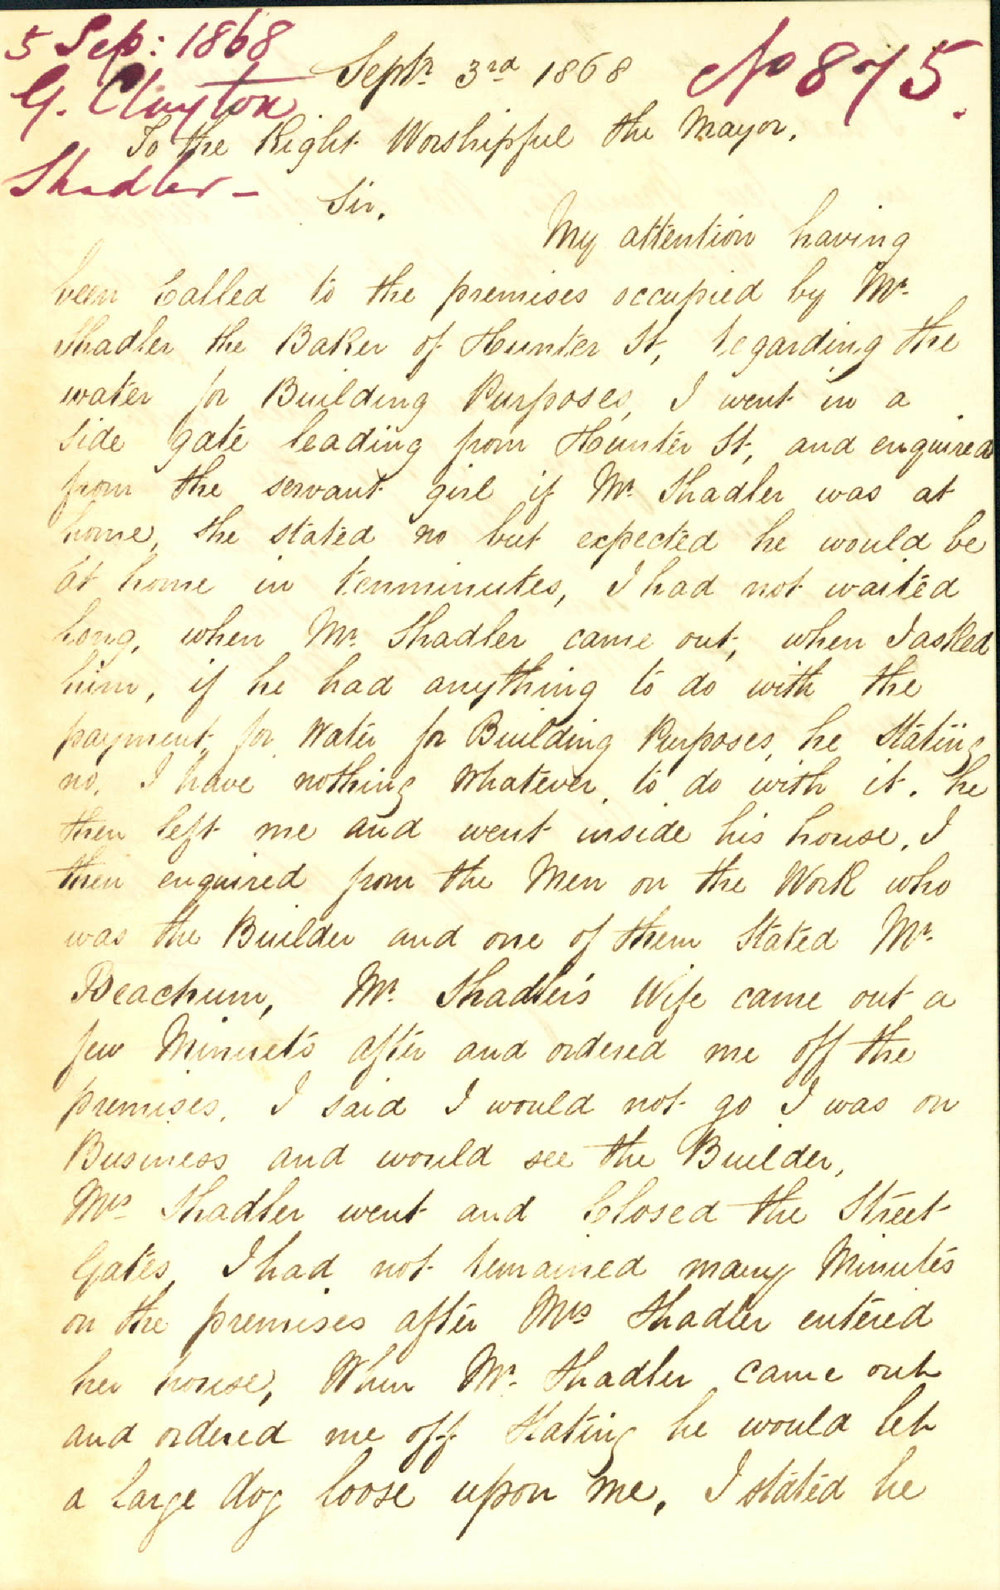 5 Sep: 1868
G. Clayton
Shadler -
No 875.
Septr 3rd 1868
To the Right Worshipful the Mayor.
Sir,
My attention having
been Called to the premises occupied by Mr.
Shadler the Baker of Hunter St, regarding the
water for Building Purposes, I went in a
side gate leading from Hunter St, and enquired
from the servant girl if Mr. Shadler was at
home, she stated no but expected he would be
at home in tenminutes, I had not waited
long, when Mr. Shadler came out, when I asked
him, if he had anything to do with the
payment, for Water for Building Purposes, he Stating
no, I have nothing Whatever, to do with it. he
then left me and went inside his house, I
then enquired from the Men on the Work who
was the Builder and one of them Stated Mr.
Beachum, Mr. Shadler's Wife came out a
few Minuets after and ordered me off the
premises, I said I would not go I was on
Business and would see the Builder,
Mrs Shadler went and Closed the Street
Gates, I had not remained many Minutes
on the premises after Mrs Shadler entered
her house, When Mr. Shadler came out
and ordered me off Stating he would let
a large dog loose upon me, I stated he